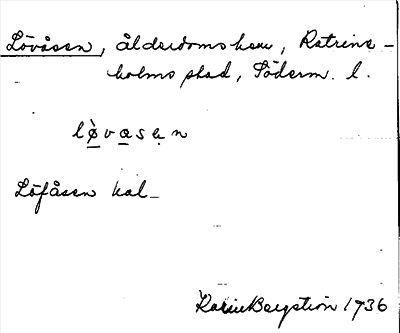 Lövåsen, ålderdomshem, Katrine-
holms stad, Söderm. l.
lø̀vasen
Löfåsen kal_
Karin Bergström 1936